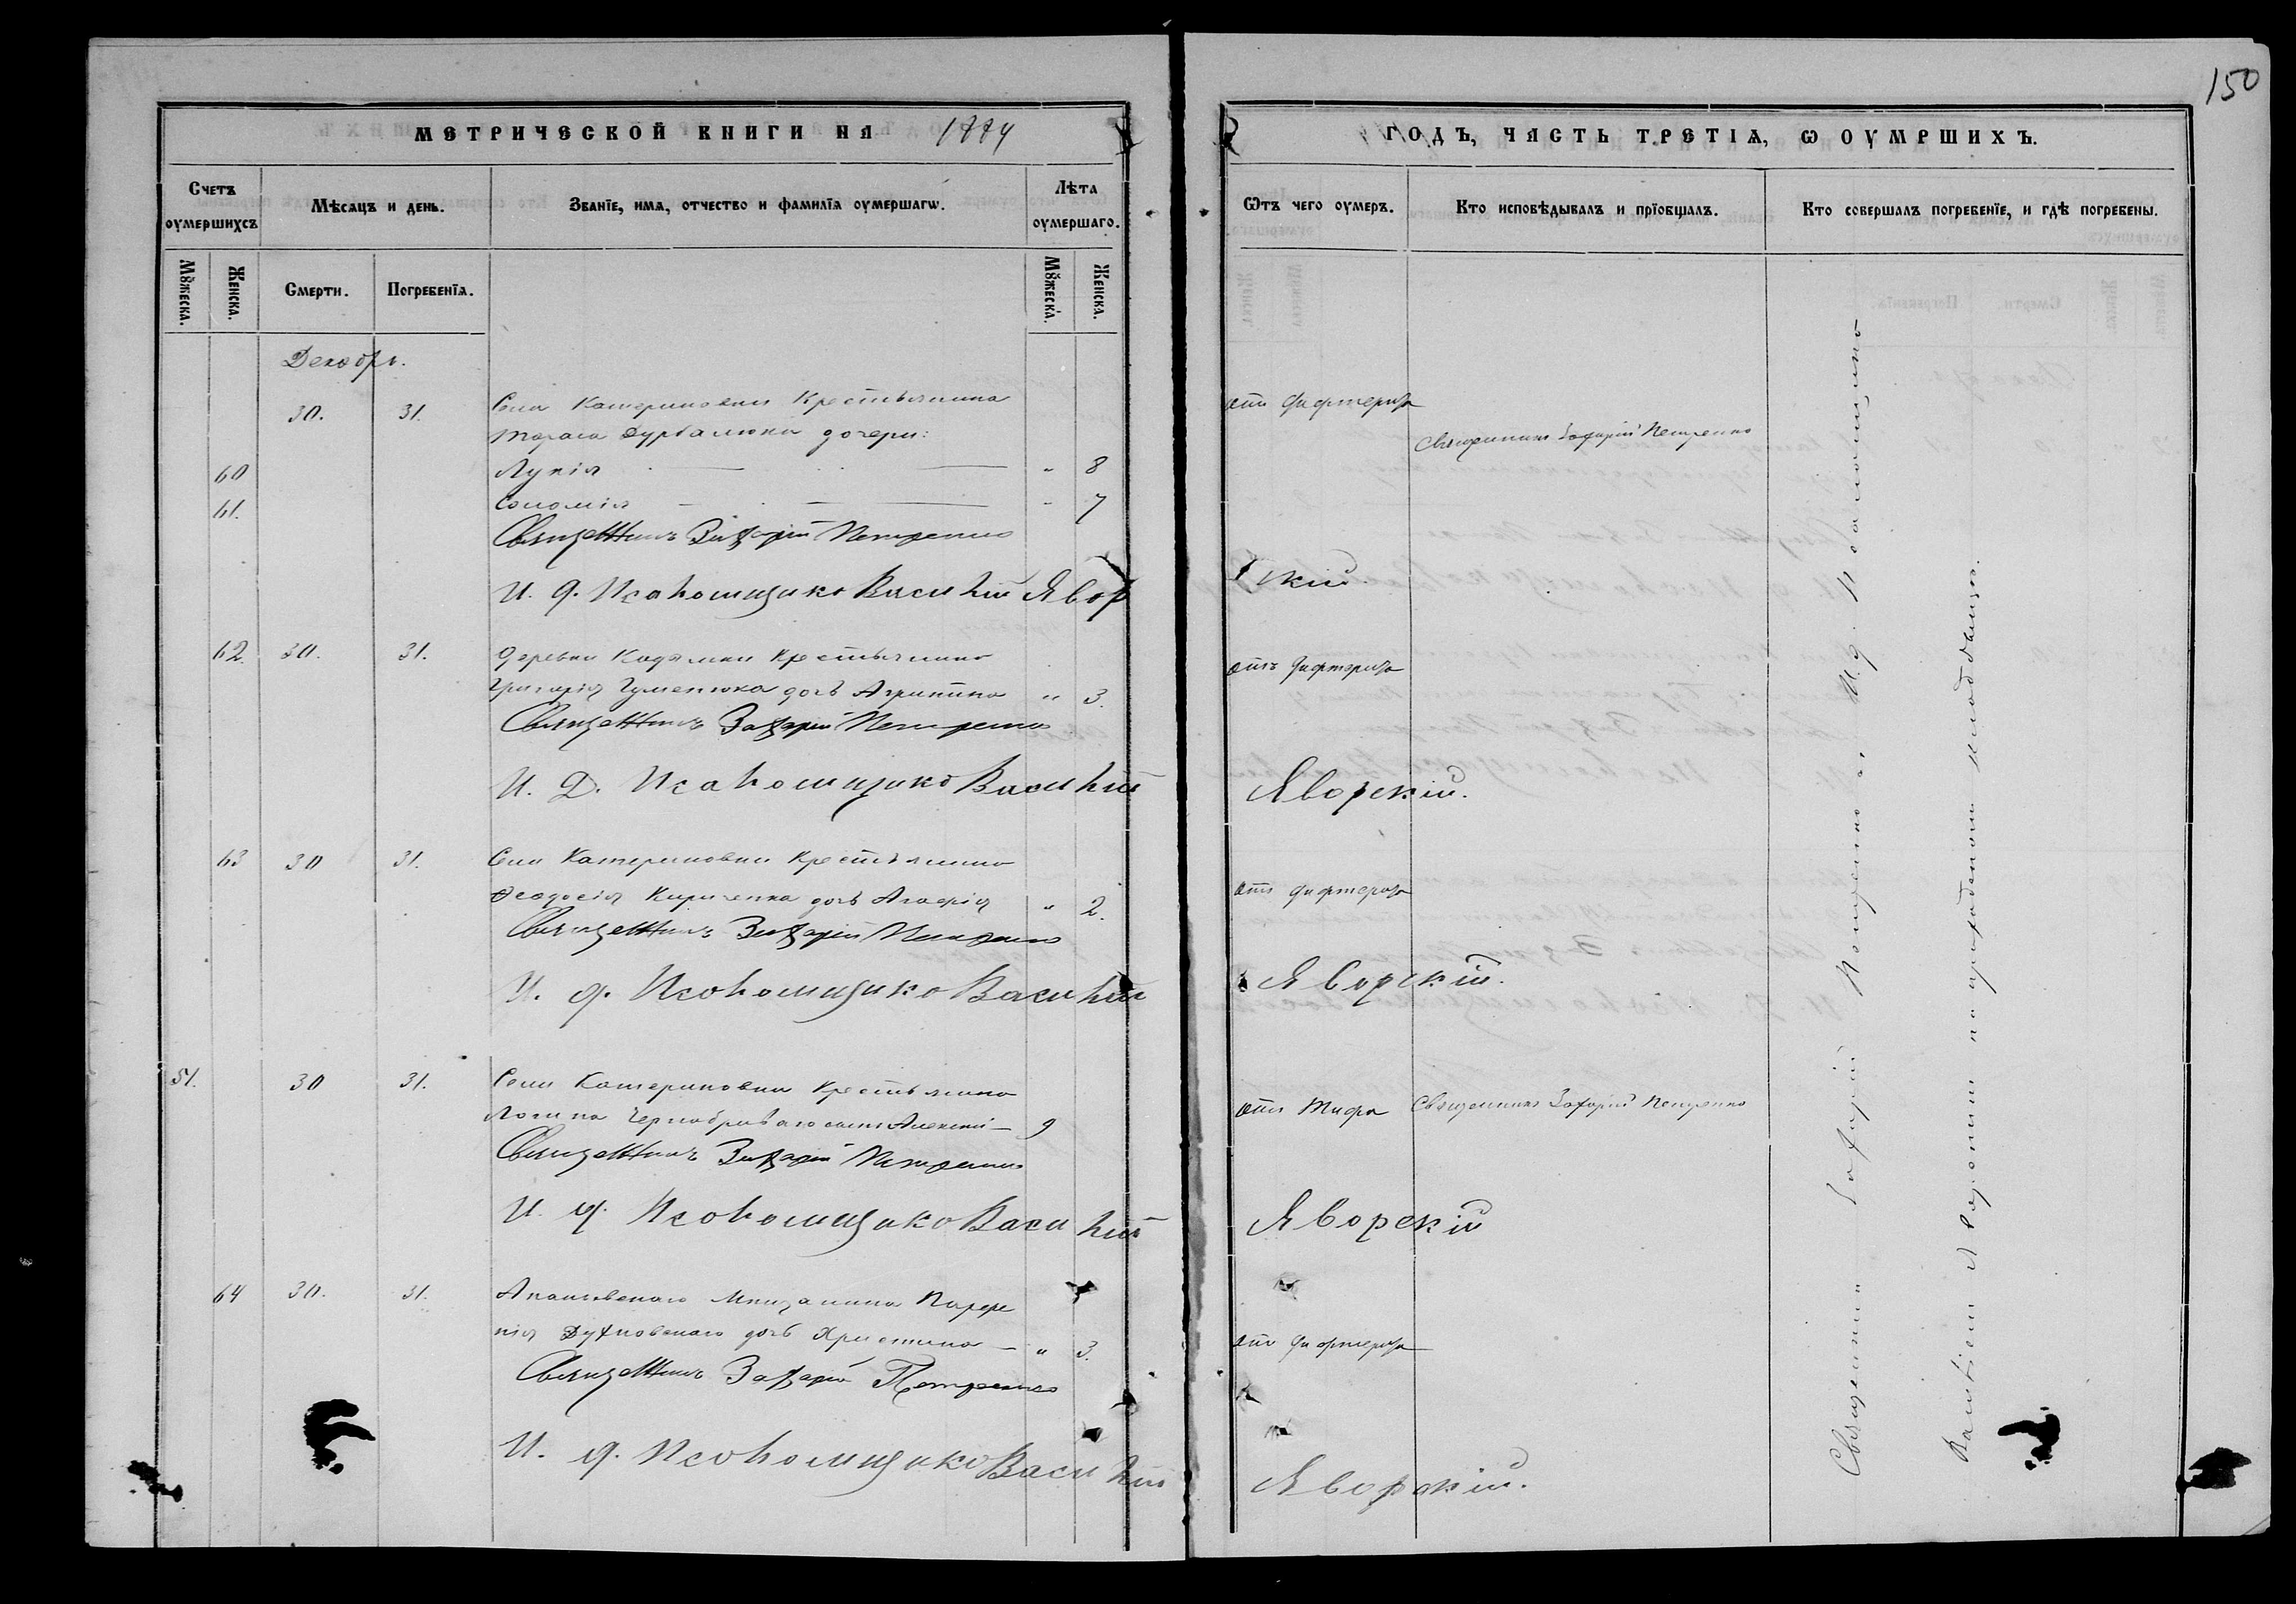 150
МЕТРИЧЕСКОЙ КНИГИ НА 1884
ГОДЪ, ЧАСТЬ ТРЕТІѦ, Ѡ ОУМРШИХЪ.
Счетъ оумершихъ
Мѣсѧцъ и день.
Званїе, имѧ, отчество и фамилїѧ оумершагѡ.
Лѣта оумершаго.
Ѿтъ чего оумеръ.
Кто исповѣдывалъ и прїобщалъ.
Кто совершалъ погребенїе, и гдѣ погребены.
Мꙋжеска.
Женска.
Смерти.
Погребенїѧ.
Мꙋжеска.
Женска.
Декабрь.
30. 31. Села Катериновки Крестьянина отъ дифтерита
Тараса Дурбалюка дочери: Священникъ Захарій Петренко
60 Лукія " 8
61. Соломія " 7
Священникъ Захарій Петренко
И. д. Псаломщика Василій Яворскій.
62. 30. 31. Деревни Кодымки Крестьянина отъ дифтерита
Григорія Гуменюка дочь Агрипина " 3.
Священникъ Захарій Петренко
И. Д. Псаломщика Василій Яворскій.
63 30 31. Села Катериновки Крестьянина
Ѳеодосія Кириченка дочь Агафія " 2. отъ дифтерита
Священникъ Захарій Петренко
И. д. Псаломщика Василій Яворскій.
51. 30 31. Села Катериновки Крестьянина
Логина Чернобриваго сынъ Алексій 9 отъ тифа Священникъ Захарій Петренко
Священникъ Захарій Петренко
И. д. Псаломщика Василій Яворскій
64 30. 31. Ананьевскаго Мѣщанина Парфе
нія Духновскаго дочь Христина " 3. отъ дифтерита
Священникъ Захарій Петренко
И. д. Псаломщика Василій Яворскій.
Священникъ Захарій Петренко и И. д. Псаломщика
Василій Яворскій на приходскомъ кладбищѣ.